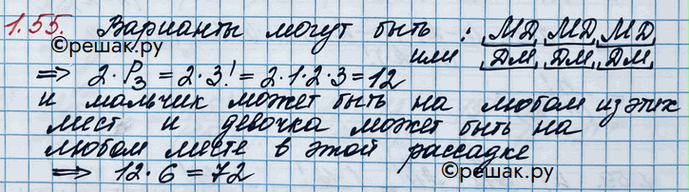 1.55. Варианты могут быть: МД, МД, МД,
©решак.ру или ДМ, ДМ, ДМ,
⇒ 2·P₃ = 2·3! = 2·1·2·3 = 12
и мальчик может быть на любом из этих
мест и девочка может быть на
любом месте в этой рассадке
⇒ 12·6 = 72 ©решак.ру